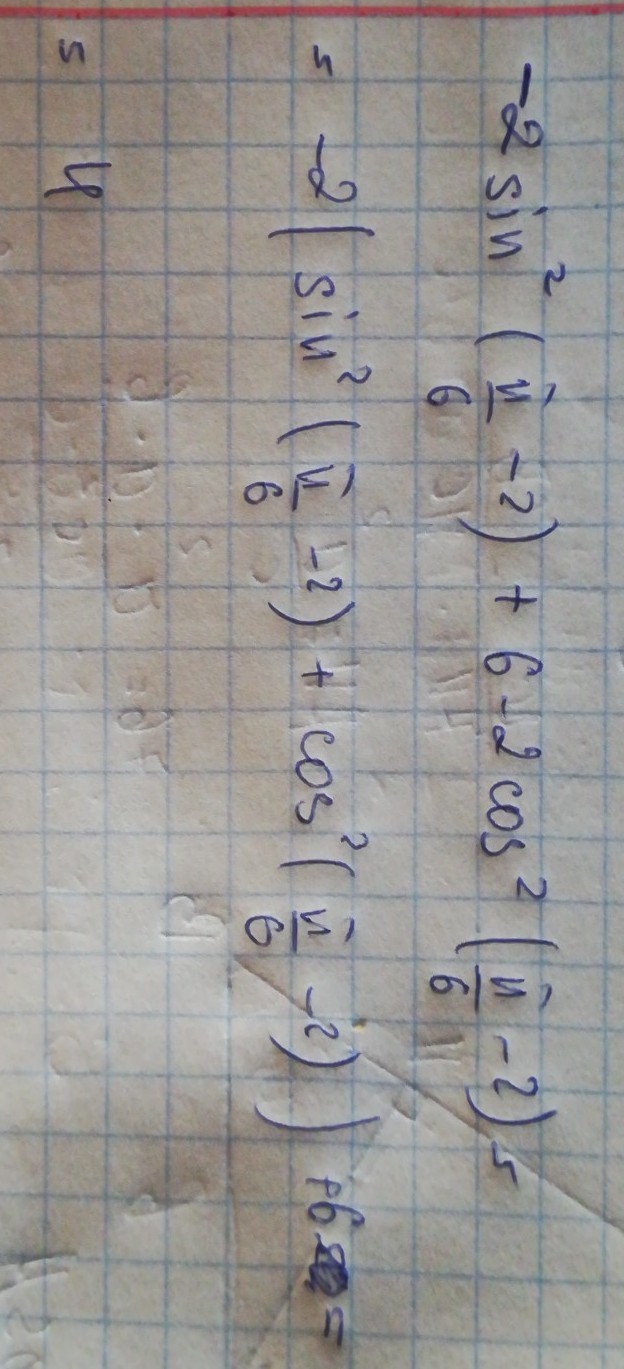 -2 sin² (π/6 - 2) + 6 - 2 cos² (π/6 - 2) =
= -2 ( sin² (π/6 - 2) + cos² (π/6 - 2) ) + 6 =
= 4